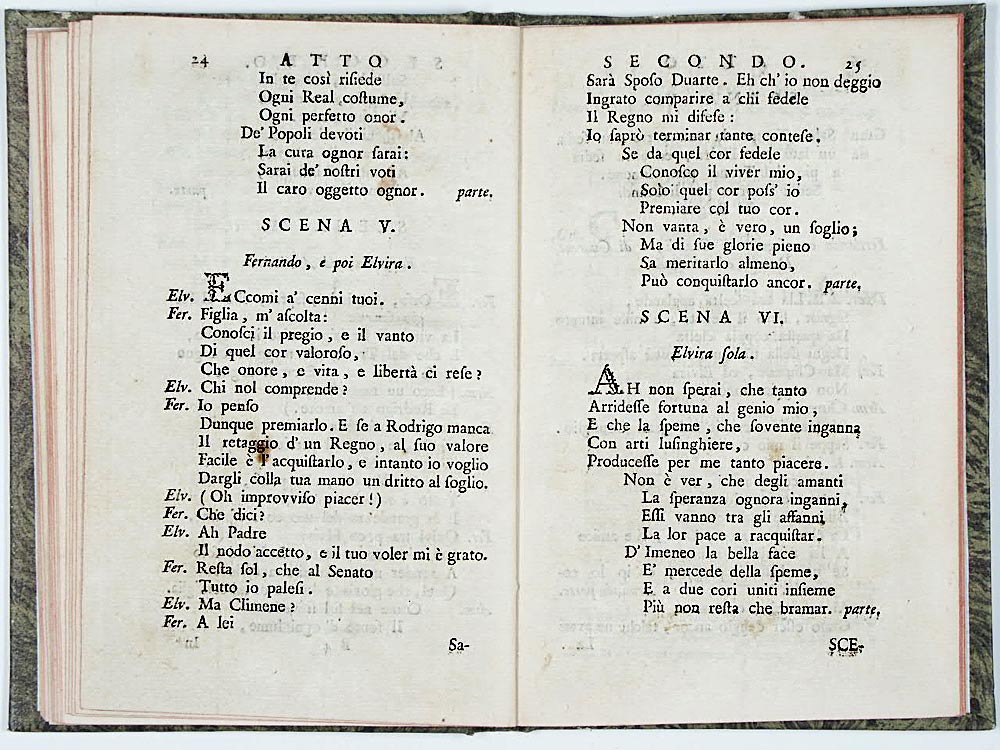 24 ATTO
In te così riſiede
Ogni Real coſtume,
Ogni perfetto onor.
De' Popoli devoti
La cura ognor ſarai:
Sarai de' noſtri voti
Il caro oggetto ognor. parte.
SCENA V.
Fernando, e poi Elvira.
Elv. ECcomi a' cenni tuoi.
Fer. Figlia, m' aſcolta:
Conoſci il pregio, e il vanto
Di quel cor valoroſo,
Che onore, e vita, e libertà ci reſe?
Elv. Chi nol comprende?
Fer. Io penſo
Dunque premiarlo. E ſe a Rodrigo manca
Il retaggio d' un Regno, al ſuo valore
Facile è l'acquiſtarlo, e intanto io voglio
Dargli colla tua mano un dritto al ſoglio.
Elv. (Oh improvviſo piacer!)
Fer. Che dici?
Elv. Ah Padre
Il nodo accetto, e il tuo voler mi è grato.
Fer. Reſta ſol, che al Senato
Tutto io paleſi.
Elv. Ma Climene?
Fer. A lei
Sa-
SECONDO. 25
Sarà Spoſo Duarte. Eh ch' io non deggio
Ingrato comparire a chi fedele
Il Regno mi difeſe:
Io ſaprò terminar tante conteſe.
Se da quel cor fedele
Conoſco il viver mio,
Solo quel cor poſſ' io
Premiare col tuo cor.
Non vanta, è vero, un ſoglio;
Ma di ſue glorie pieno
Sa meritarlo almeno,
Può conquiſtarlo ancor. parte.
SCENA VI.
Elvira ſola.
AH non ſperai, che tanto
Arrideſſe fortuna al genio mio,
E che la ſpeme, che ſovente inganna
Con arti luſinghiere,
Produceſſe per me tanto piacere.
Non è ver, che degli amanti
La ſperanza ognora inganni,
Eſſi vanno tra gli affanni
La lor pace a racquiſtar.
D' Imeneo la bella face
E' mercede della ſpeme,
E a due cori uniti inſieme
Più non reſta che bramar. parte.
SCE-